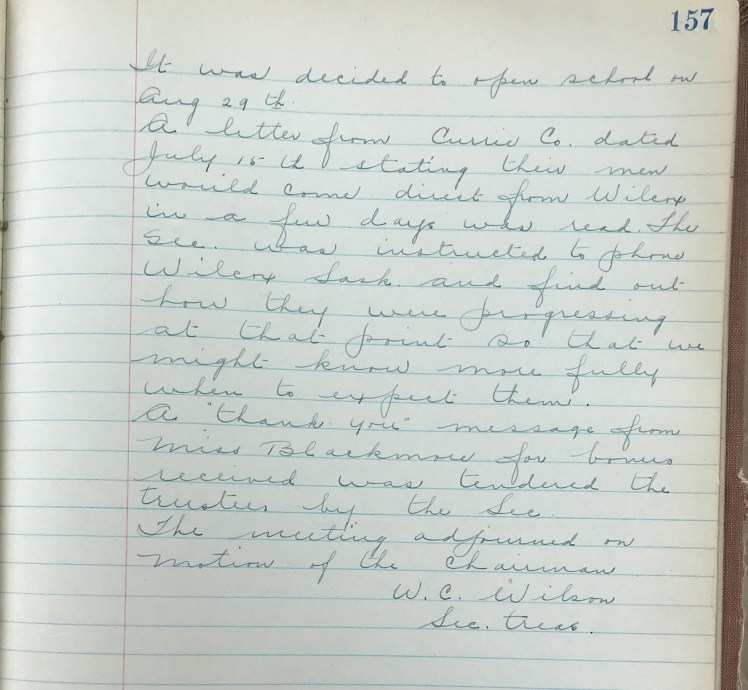 157
It was decided to open school on
Aug 29 th.
A letter from Currie Co. dated
July 15 th stating their men
would come direct from Wilcox
in a few days was read. The
Sec. was instructed to phone
Wilcox Sask. and find out
how they were progressing
at that point so that we
might know more fully
when to expect them.
A "thank you" message from
Miss Blackmore for bonus
received was tendered the
trustees by the Sec.
The meeting adjourned on
motion of the Chairman
W. C. Wilson
Sec. Treas.